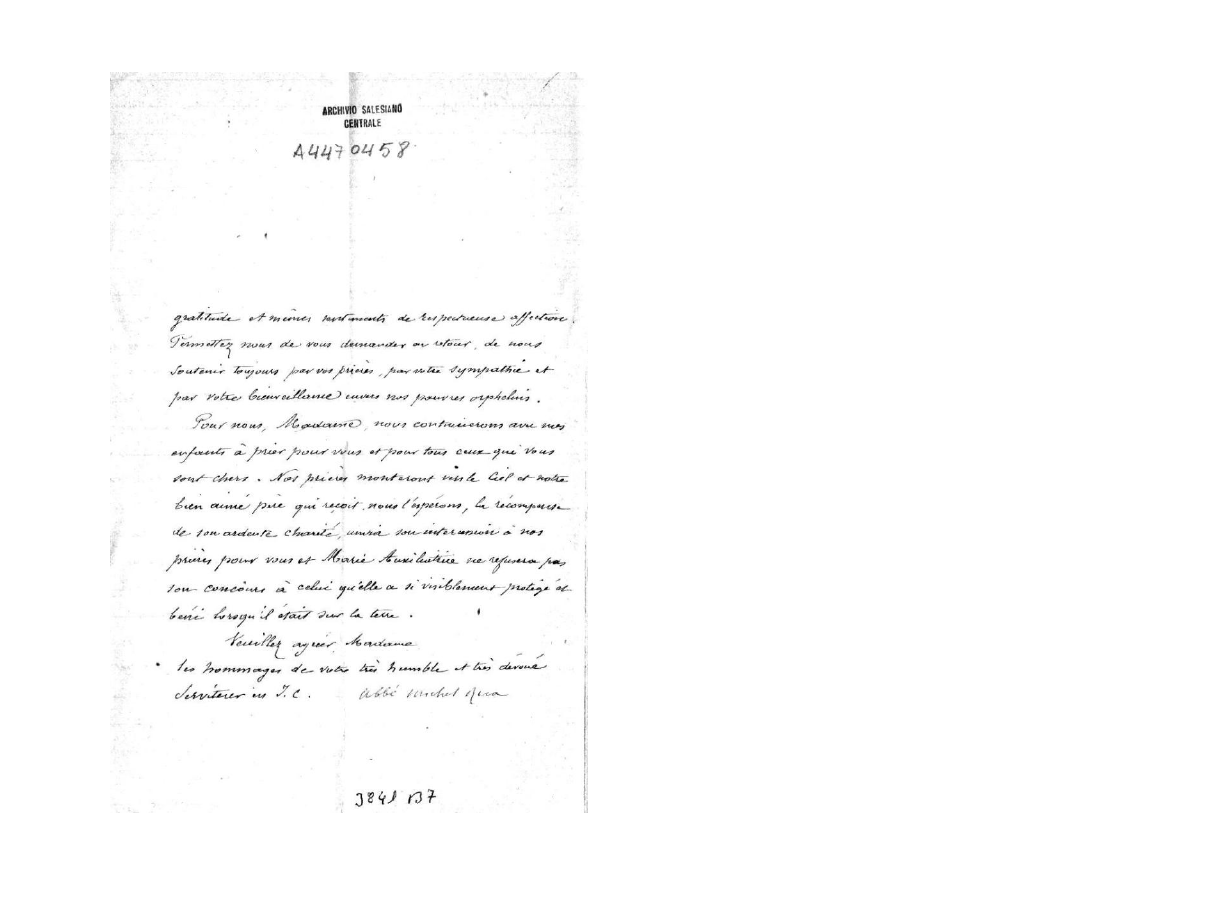 ARCHIVIO SALESIANO
CENTRALE
A4470458
gratitude et mêmes sentiments de respectueuse affection.
Permettez nous de vous demander en retour, de nous
soutenir toujours par vos prières, par votre sympathie et
par votre bienveillance envers nos pauvres orphelins.
Pour nous, Madame, nous continuerons avec nos
enfants à prier pour vous et pour tous ceux qui vous
sont chers. Nos prières monteront vers le Ciel et notre
bien aimé père qui reçoit, nous l'espérons, la récompense
de son ardente charité, unira son intercession à nos
prières pour vous et Marie Auxiliatrice ne refusera pas
son concours à celui qu'elle a si visiblement protégé et
béni lorsqu'il était sur la terre.
Veuillez agréer Madame
les hommages de votre très humble et très dévoué
Serviteur en J.C. abbé Michel Rua
3841 B7